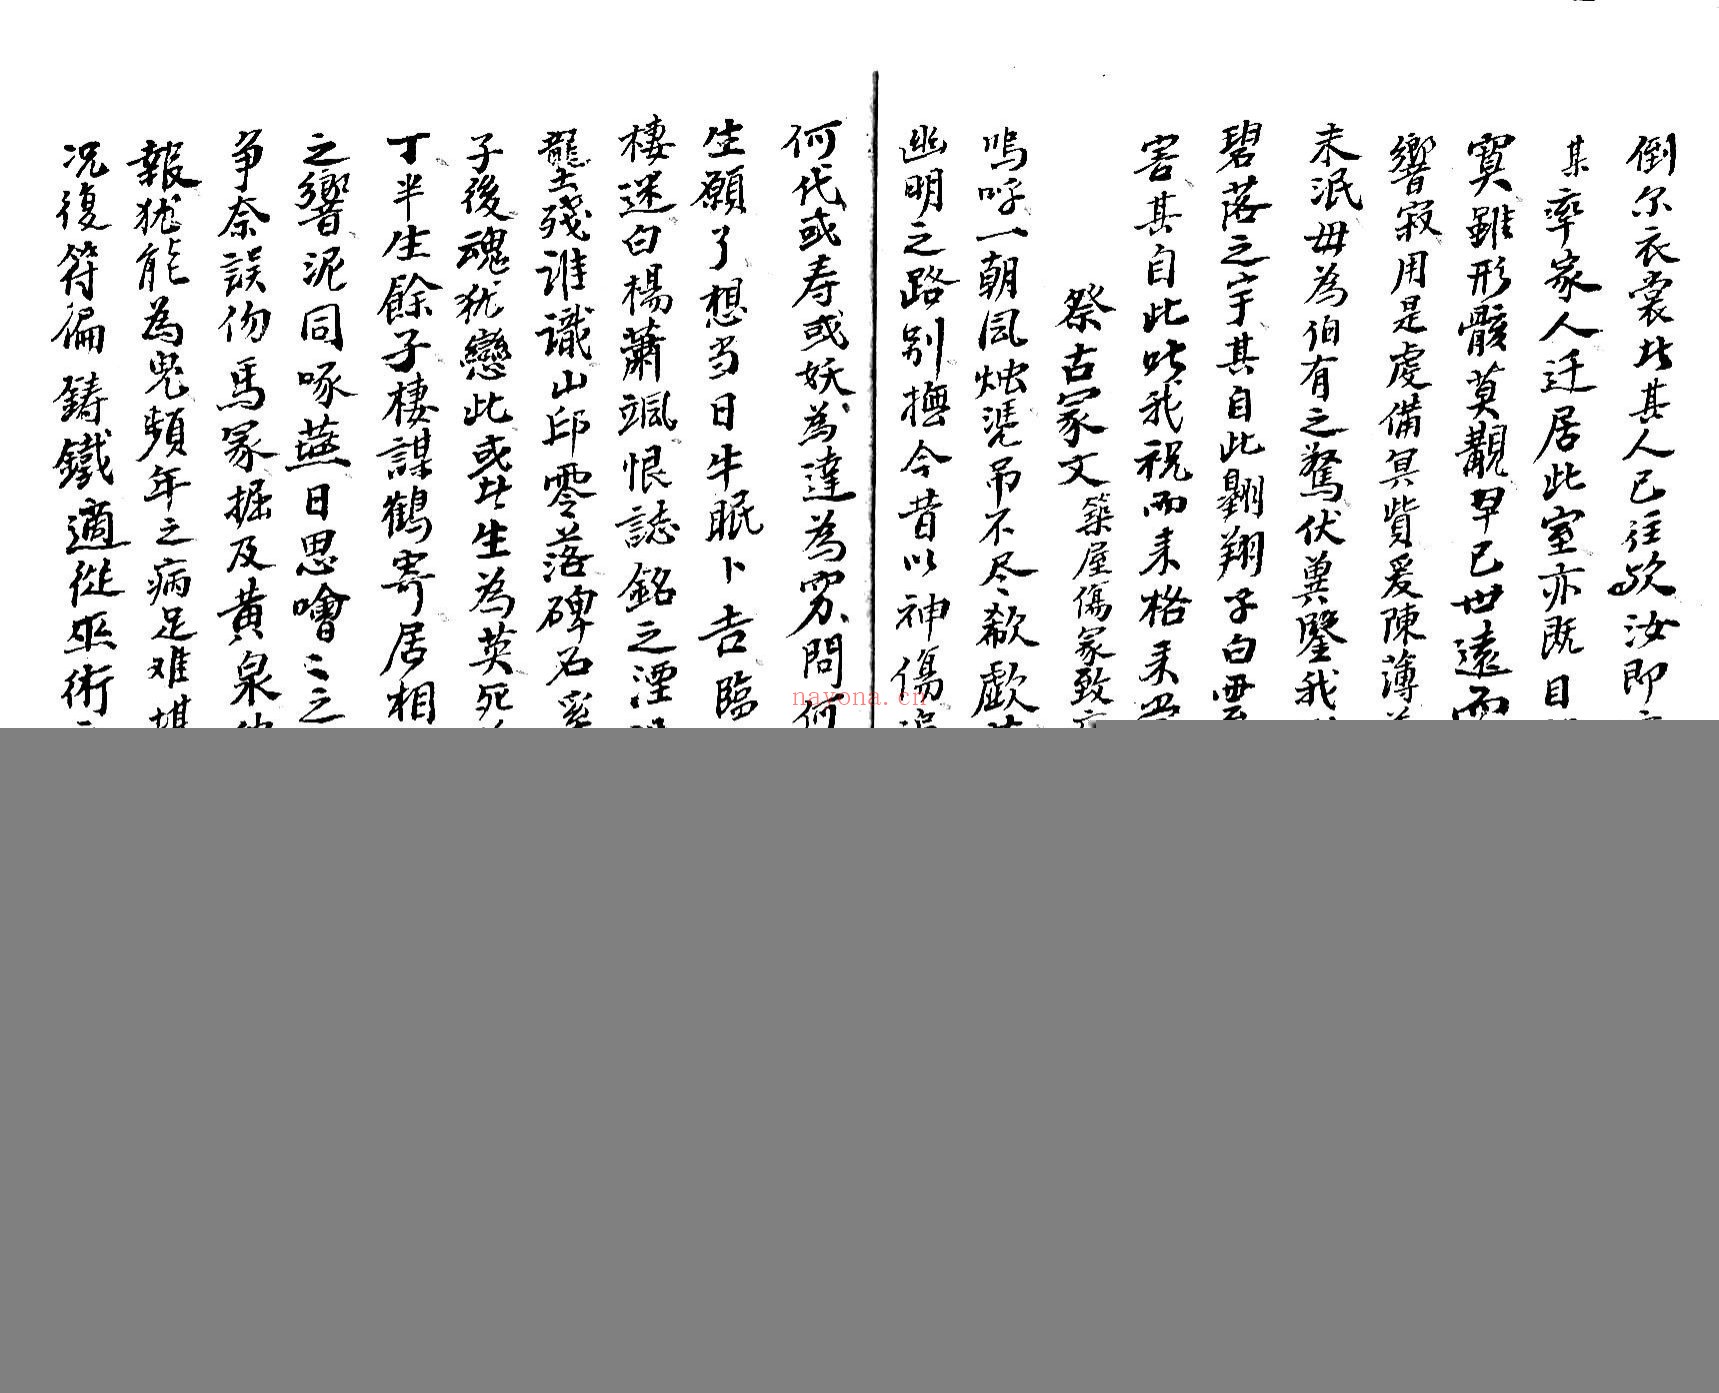 倒尔衣裳比其人已往欤汝即
某率家人迁居此室亦既目
冥雖形骸莫覯早已世遠而
響寂用是虔備冥貲爰陳薄
未泯毋為伯有之驚伏冀鑒我
碧落之宇其自此翱翔子白雲
害其自此呲我祝而来格来
祭古冢文 築屋傷冢致
嗚呼一朝风烛凴吊不尽欷歔
幽明之路别撫今昔以神傷
何代或寿或妖為達為窮問何
生願了想当日牛眠卜吉臨
棲迷白楊蕭颯恨誌銘之湮
壟殘誰識山邱零落碑石
子後魂犹戀此或比生為英死
丁半生餘子棲謀鶴寄居相
之響泥同啄燕日思噲〻之
争奈誤伤馬冢掘及黃泉
報犹能為鬼頻年之病足难堪
况復符徧鑄鐵適從巫術
nayona.cn